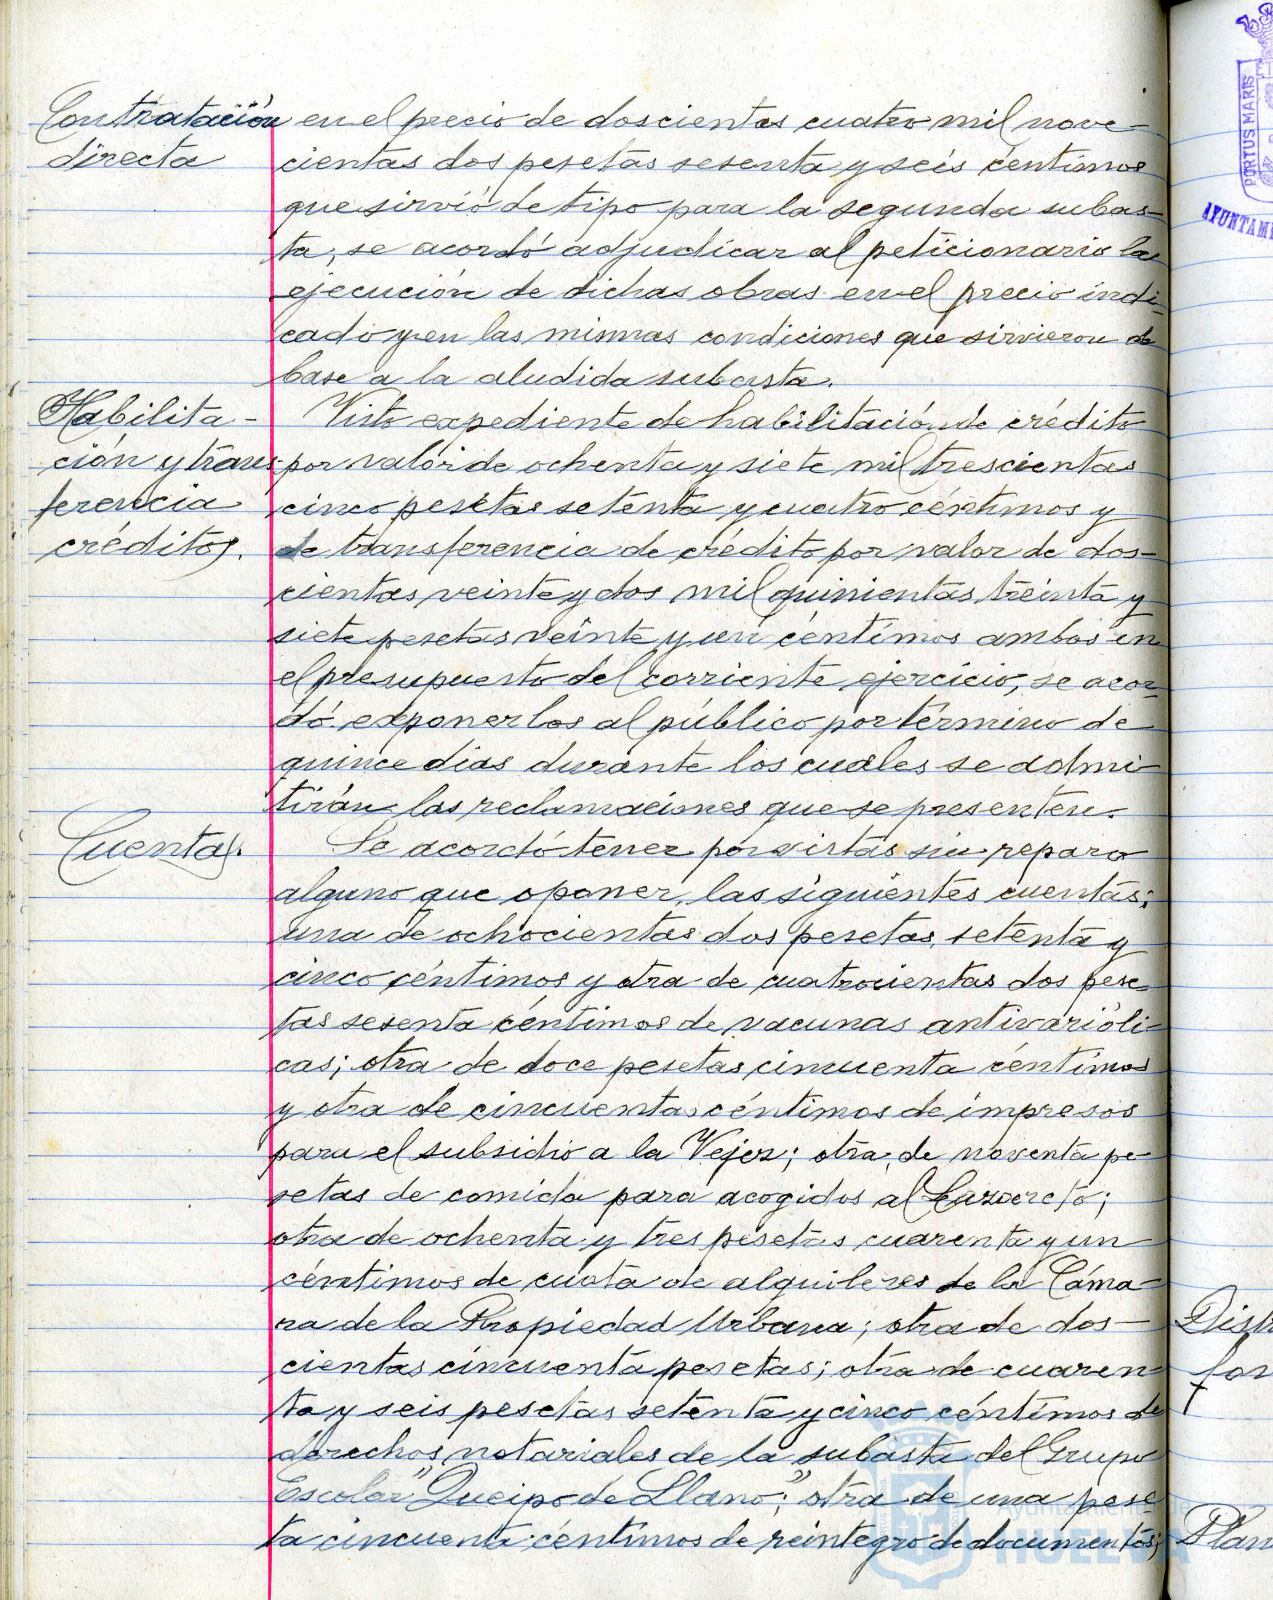 Contratación
directa
en el precio de doscientas cuatro mil nove-
cientas dos pesetas sesenta y seis céntimos
que sirvió de tipo para la segunda subas-
ta, se acordó adjudicar al peticionario la
ejecución de dichas obras en el precio indi-
cado y en las mismas condiciones que sirvieron de
base a la aludida subasta.
Habilita-
ción y trans-
ferencia
créditos.
Visto expediente de habilitación de crédito
por valor de ochenta y siete mil trescientas
cinco pesetas setenta y cuatro céntimos y
de transferencia de crédito por valor de dos-
cientas veinte y dos mil quinientas treinta y
siete pesetas veinte y un céntimos ambos en
el presupuesto del corriente ejercicio, se acor-
dó exponerlos al público por término de
quince días durante los cuales se admi-
tirán las reclamaciones que se presenten.
Cuentas.
Se acordó tener por vistas sin reparo
alguno que oponer, las siguientes cuentas;
una de ochocientas dos pesetas setenta y
cinco céntimos y otra de cuatrocientas dos pese-
tas sesenta céntimos de vacunas antivarióli-
cas; otra de doce pesetas cincuenta céntimos
y otra de cincuenta céntimos de impresos
para el subsidio a la Vejez; otra de noventa pe-
setas de comida para acogidos al Lazareto;
otra de ochenta y tres pesetas cuarenta y un
céntimos de cuota de alquileres de la Cáma-
ra de la Propiedad Urbana; otra de dos-
cientas cincuenta pesetas; otra de cuaren-
ta y seis pesetas setenta y cinco céntimos de
derechos notariales de la subasta del Grupo
Escolar "Queipo de Llano"; otra de una pese-
ta cincuenta céntimos de reintegro de documentos;
PORTUS MARIS
Ayuntamiento de
HUELVA